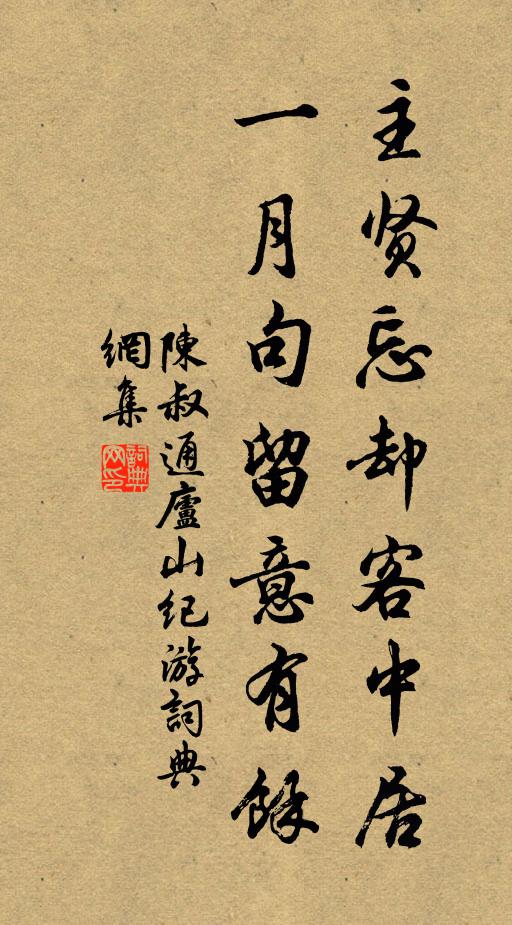 主贤忘却客中居
一月句留意有餘
陳叔通廬山纪游詞典
網集
詞典
网印